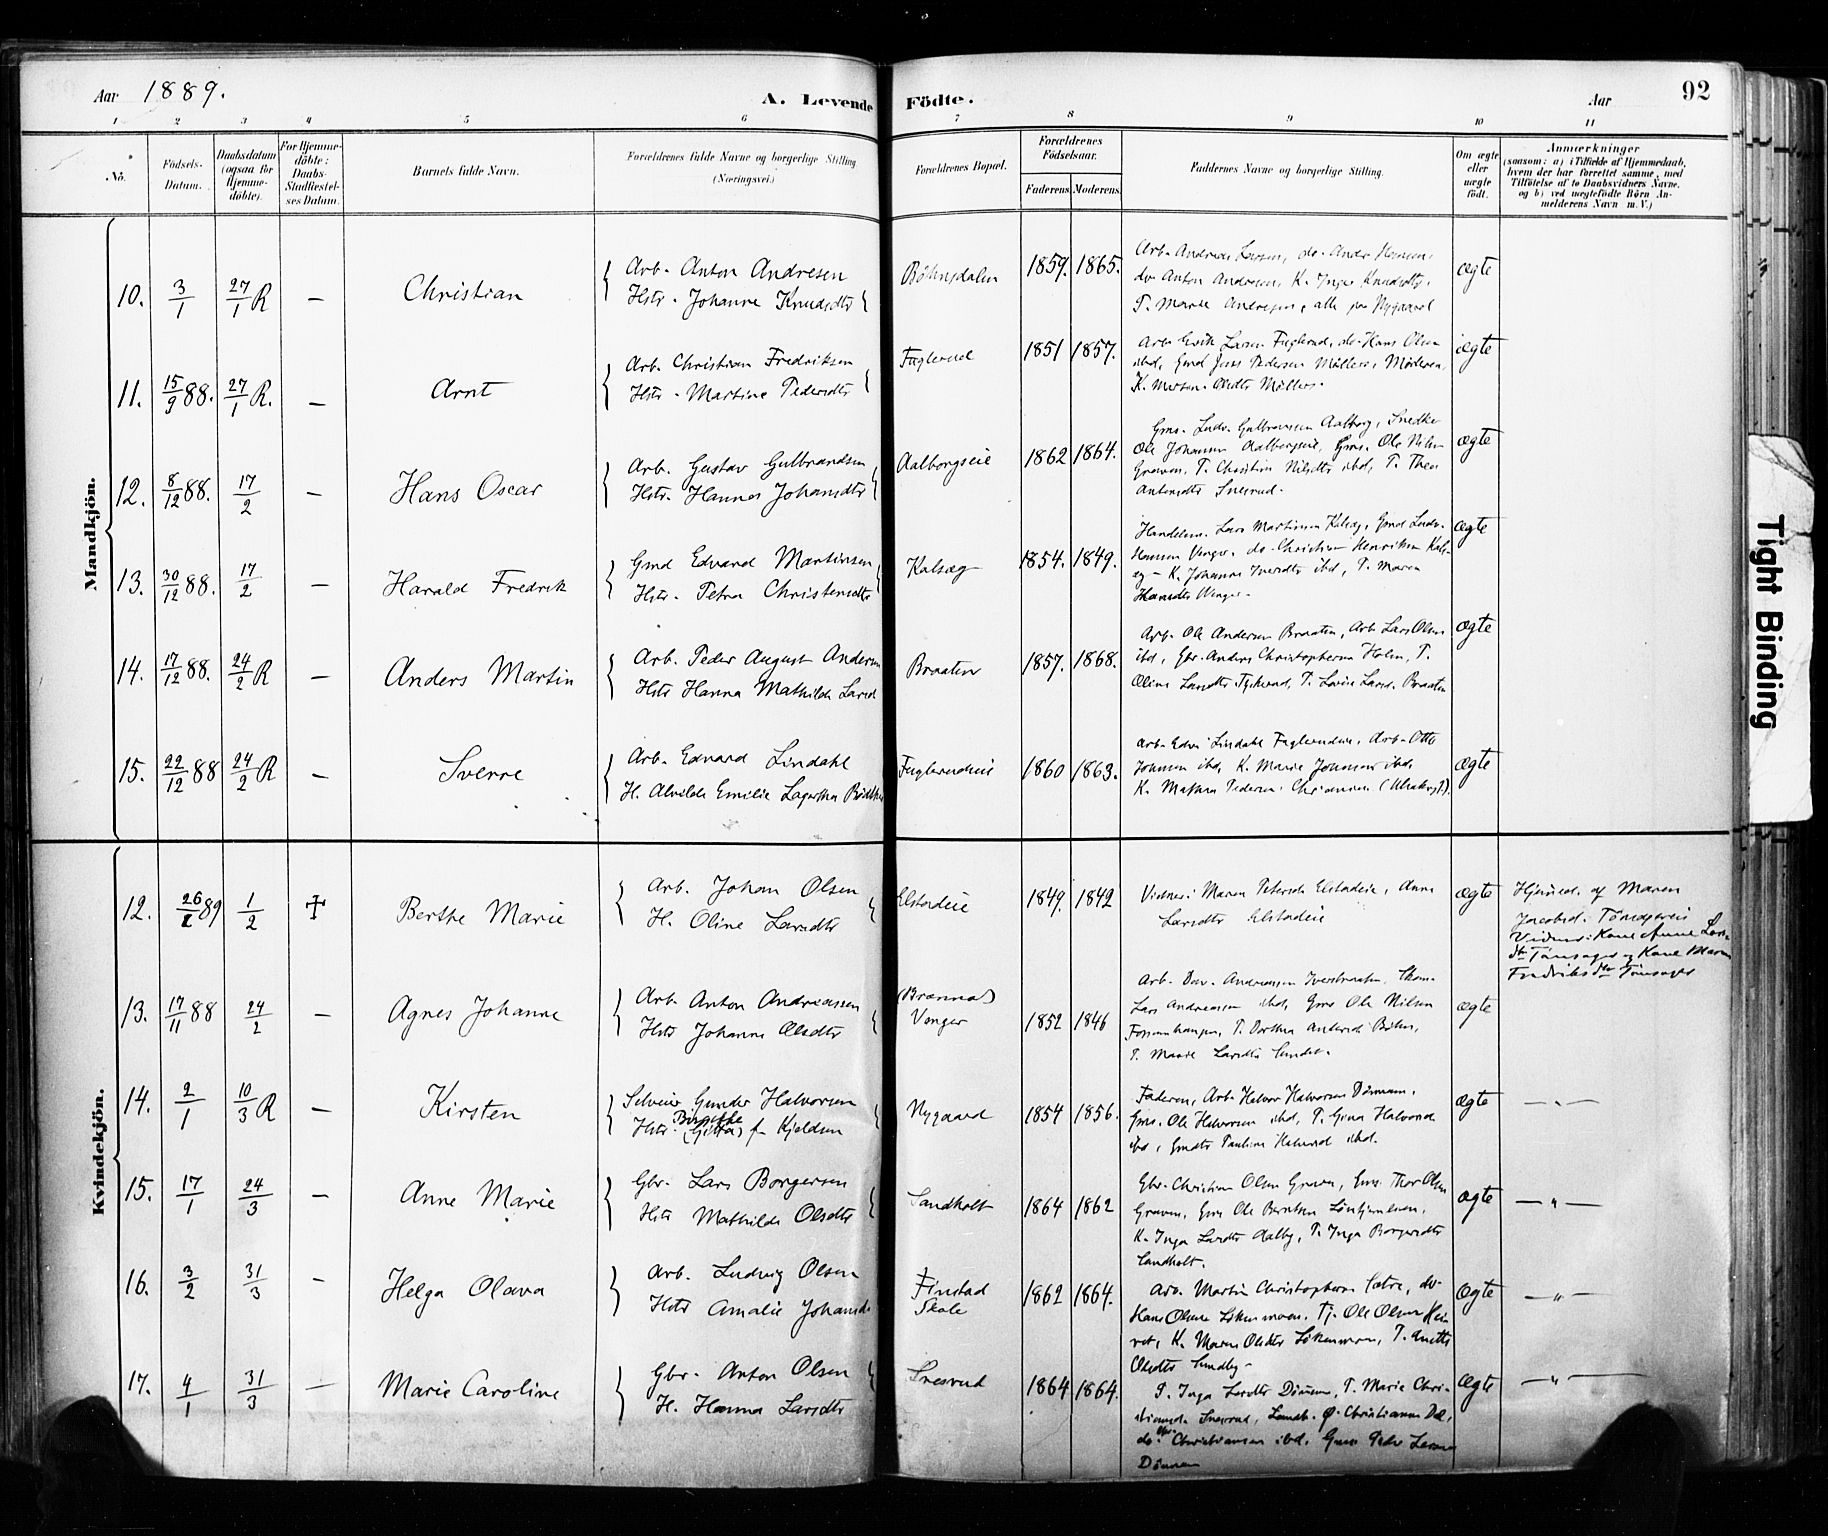 Aar 1889.
A. Levende Födte.
Aar
92
1 2 3 4 5 6 7 8 9 10 11
No.
Födsels-Datum.
Daabsdatum (ogsaa for Hjemme-döbte).
For Hjemme-döbte: Daabs-Stadfæstel-ses Datum.
Barnets fulde Navn.
Forældrenes fulde Navne og borgerlige Stilling. (Næringsvei.)
Forældrenes Bopæl.
Forældrenes Födselsaar.
Faderens. Moderens.
Faddernes Navne og borgerlige Stilling.
Om ægte eller uægte födt.
Anmærkninger
(saasom: a) i Tilfælde af Hjemmedaab, hvem der har forrettet samme, med Tilföielse af to Daabsvidners Navne, og b) ved uægtefödte Börn An-melderens Navn m. V.)
Mandkjön.
10. 3/1 27/1 R — Christian
Arb. Anton Andresen
Hstr. Johanne Knudsdtr
Böhnsdalen 1859. 1865.
Arb. Andreas Larsen, do. Anders Hansen,
do Anton Andresen, K. Inger Knudsdtr,
P. Marie Andresen, alle paa Nygaard
ægte
11. 15/9 88. 27/1 R. — Arnt
Arb. Christian Fredriksen
Hstr. Martine Pedersdtr
Fuglerud 1851 1857.
Arb. Erik Larsen Fuglerud, do. Hans Olsen
ibid, Gmd Jens Pedersen
ægte
12. 8/12 88. 17/2 — Hans Oscar
Arb. Gustav Gulbrandsen
Hstr. Hanna Johansdtr
Aalborgseie 1862 1864.
Gms. Ludv. Gulbrandsen Aalborg, Snedker
Ole Johansen Aalborgseie, Gms. Ole Nilsen
Graven, P. Christine Nilsdtr ibid, P. Thea
Antonsdtr Snesrud.
ægte
13. 30/12 88. 17/2 — Harald Fredrik
Gmd Edvard Martinsen
Hstr. Petra Christensdtr
Kalsæg 1854. 1849.
Handelsm. Lars Martinsen Kalsæg, Gmd Ludv.
Hansen Venger, do. Christian Henriksen Kals-
æg — K. Johanne Iversdtr ibid, P. Maren
Hansdtr Venger.
ægte
14. 17/12 88. 24/2 R — Anders Martin
Arb. Peder August Andersen
Hstr Hanna Mathilde Larsd
Braaten 1857. 1868.
Arb. Ole Andersen Braaten, Arb. Lars Olsen
ibid, Gbr. Anders Christophersen Holm, P.
Oline Larsdtr P. Lovise Larsd. Braaten
ægte
15. 22/12 88 24/2 R — Sverre
Arb. Edvard Lindahl
H. Alvilde Emilie Lagertha
Fuglerudeie 1860 1863.
Arb. Edv. Lindahl Fuglerudeie, Arb. Otto
Johnsen ibid, K. Marie Johnsen ibid,
K. Mathea Pedersen
ægte
Kvindekjön.
12. 26/1 89 1/2 Berthe Marie
Arb. Johan Olsen
H. Oline Larsdtr
Elstadeie 1849. 1842
Vidner: Maren Petersd Elstadeie, Anne
Larsdtr Elstadeie
ægte
Hjemmed. af Maren
Jacobsd.
Vidner: Kone Anne Lars-
dtr Tönsager og Kone Maren
Fredriksdtr Tönsager
13. 17/11 88 24/2 — Agnes Johanne
Arb. Anton Andreassen
Hstr Johanne Olsdtr
(Brænna)
Venger 1852 1846
Arb. Dav. Andreassen Iversbraaten,
Lars Andreassen ibid, Gms Ole Nilsen
Fossumhaugen, P. Dorthea Antonsd Böhn,
P. Marie Larsdtr Sundet.
ægte
14. 2/1 10/3 R — Kirsten
Selveier Gunder Halvorsen
Birgitte
Hstr. (Gitta) f. Kjeldsen
Nygaard 1854 1856.
Faderen, Arb. Halvor Halvorsen Dönnum,
Gms. Ole Halvorsen ibid, P. Gina Halvorsd
ibd, Gmdtr Pauline Halvorsd ibd.
ægte — „ —
15. 17/1 24/3 — Anne Marie
Gbr. Lars Borgersen
Hstr Mathilde Olsdtr
Sandholt 1864 1862
Gbr. Christian Olsen Graven, Gms. Thor Olsen
Graven, Gms Ole Berntsen
K. Inga Larsdtr Aalby, P. Inga Borgersdtr
Sandholt.
ægte — „ —
16. 3/2 31/3 — Helga Olava
Arb. Ludvig Olsen
Hstr Amalie Johansd
Finstad
Skole 1862 1864.
Arb. Martin Christophersen Sætre, do
Hans Olsen Lökenmoen, Tj. Ole Olsen
K. Maren Olsdtr Lökenmoen, P. Anette
Olsdtr Sundby.
ægte — „ —
17. 4/1 31/3 — Marie Caroline
Gbr. Anton Olsen
H. Hanna Larsdtr
Snesrud 1864 1864.
P. Inga Larsdtr Dönnum, P. Marie Chri-
stiansd. Snesrud, Landh. O. Christiansen Dal,
do. Chr. Christiansen ibd. Gms Peder Larsen
Dönnum
ægte — „ —
Tight Binding